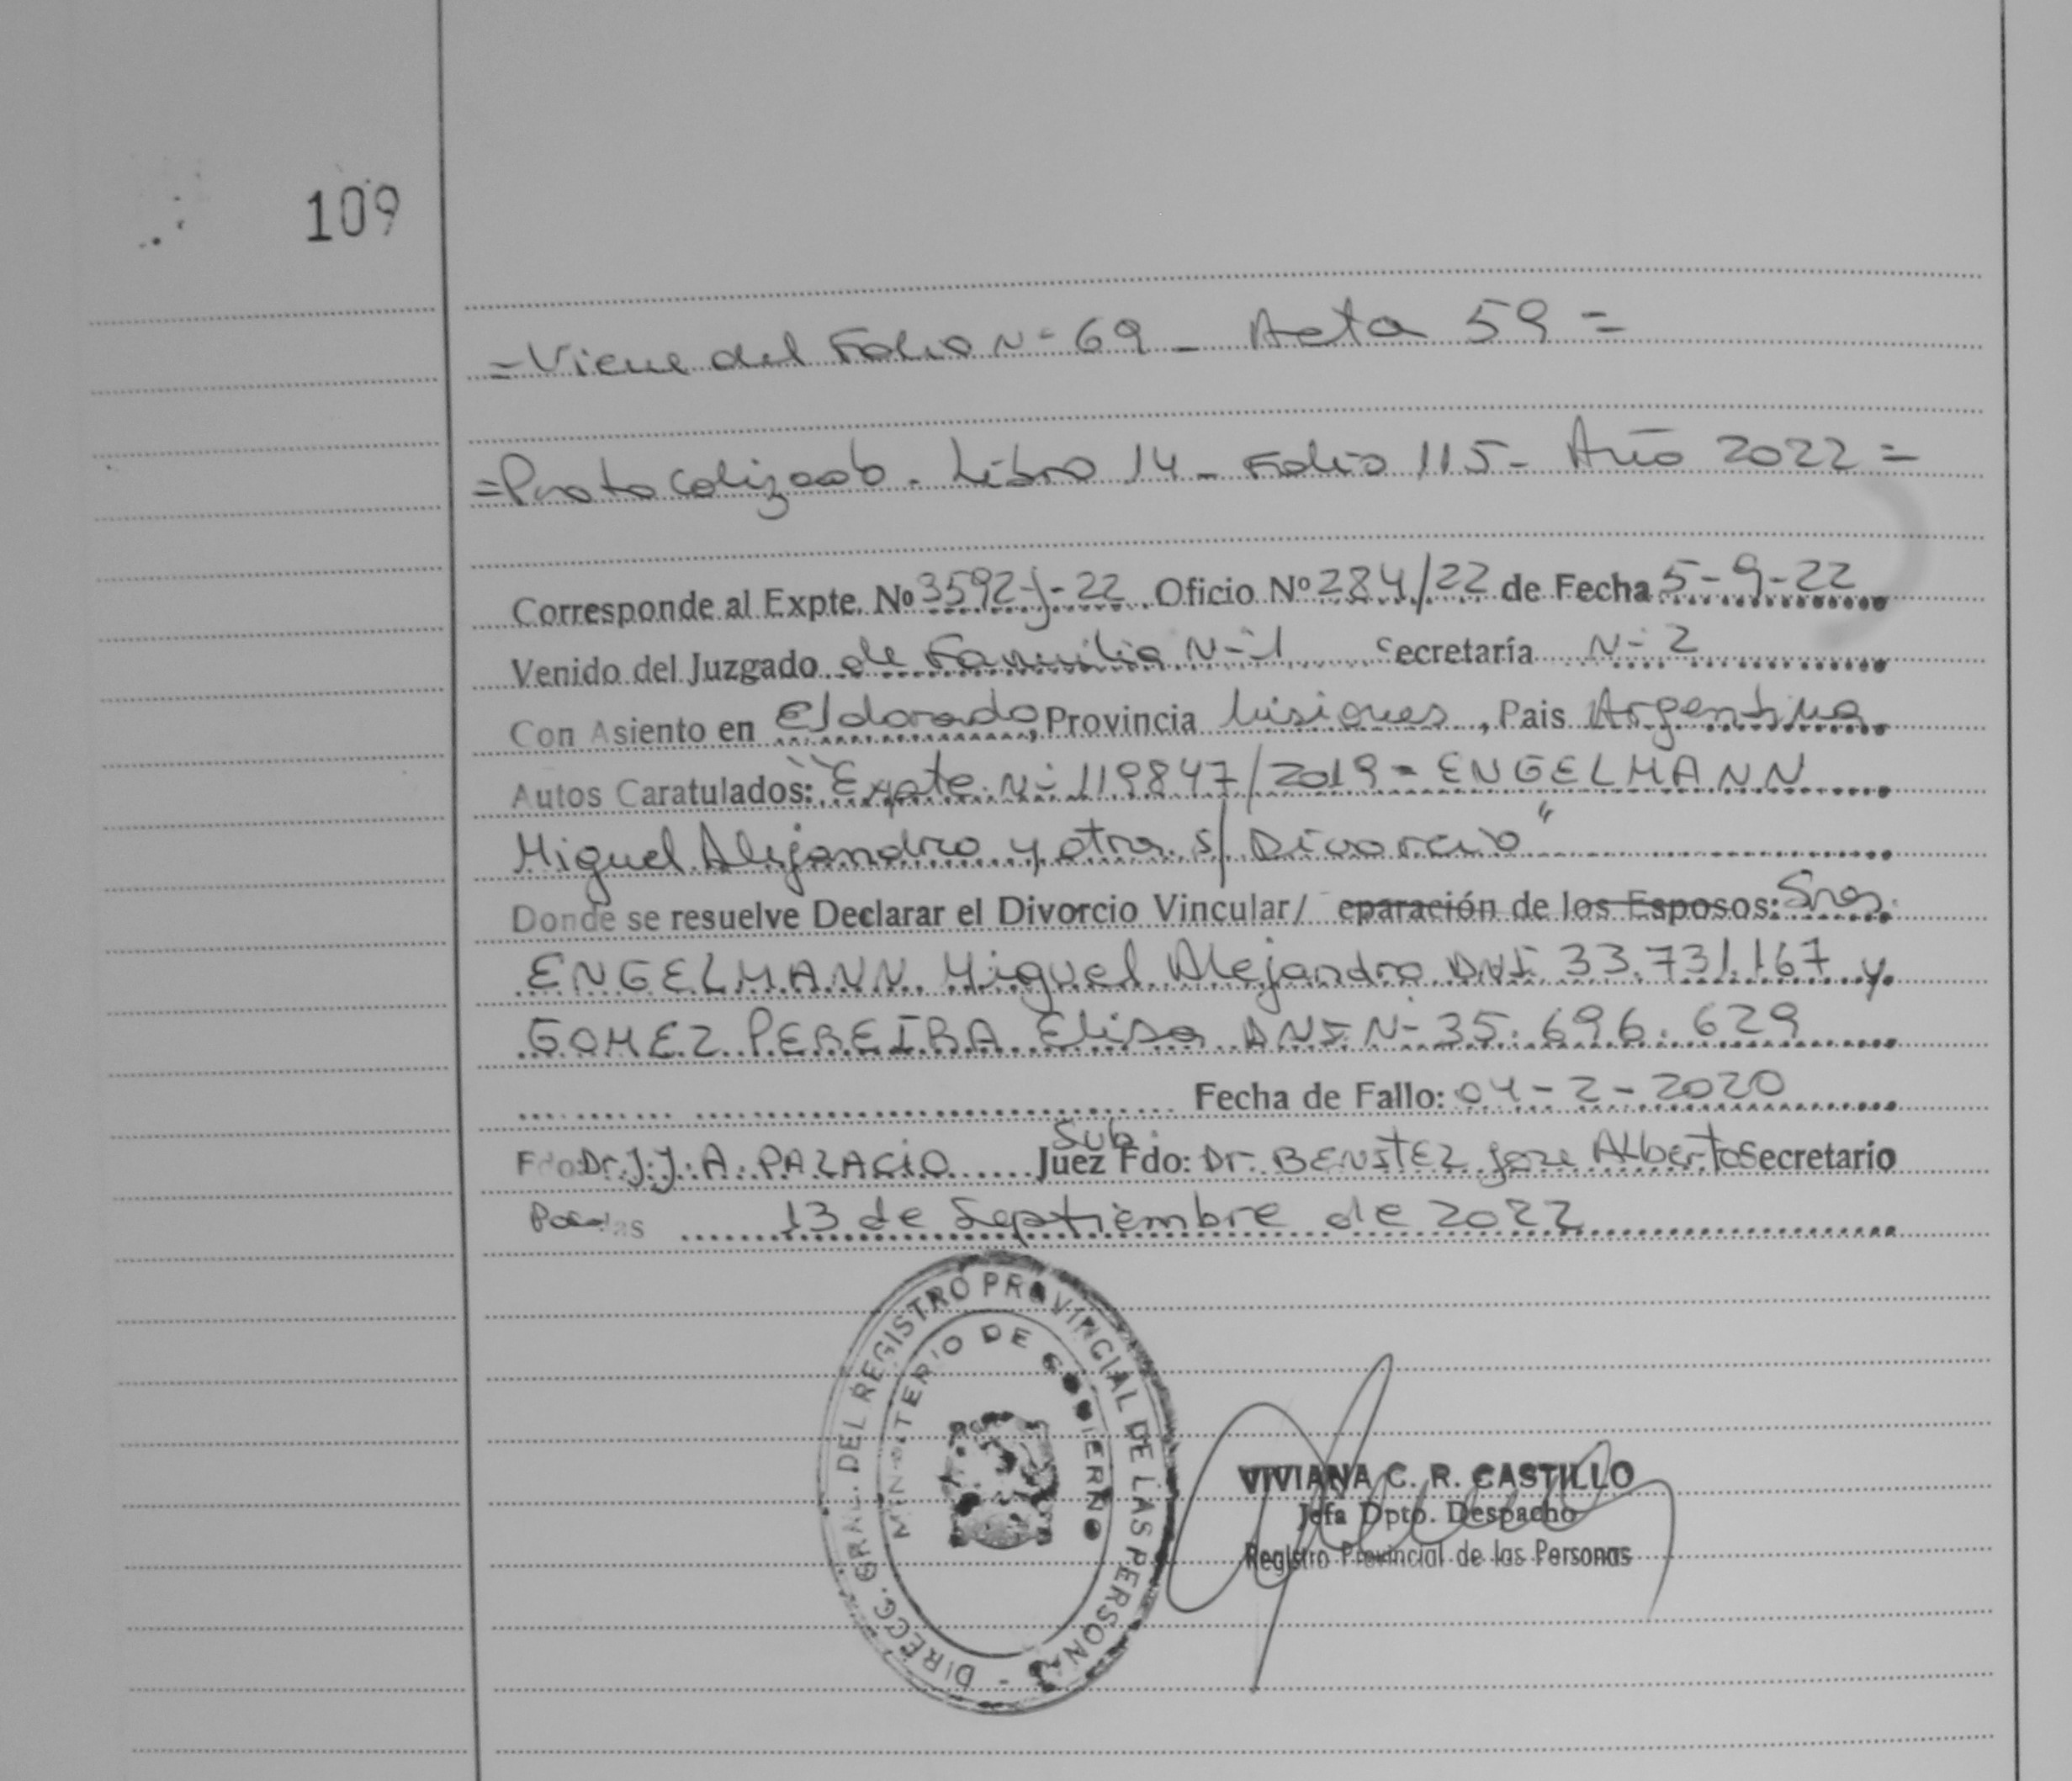 109
=Viene del Folio N- 69 - Acta 59=
=Protocolizado. Libro 14 - Folio 115- Año 2022=
Corresponde al Expte. Nº 3592-J-22 Oficio Nº 284/22 de Fecha 5-9-22
Venido del Juzgado de Familia N-1 Secretaría N- 2
Con Asiento en Eldorado, Provincia Misiones, Pais Argentina
Autos Caratulados: "Expte. N- 119847/2019 - ENGELMANN
Miguel Alejandro y otra s/ Divorcio"
Donde se resuelve Declarar el Divorcio Vincular/ eparación de los Esposos: Sres.
ENGELMANN Miguel Alejandro DNI 33.731.167 y
GOMEZ PEREIRA Elisa DNI N- 35.696.629
Fecha de Fallo: 04-2-2020
Sub.
Fdo: Dr. J.J.A. PALACIO Juez Fdo: Dr. BENITEZ Jose Alberto Secretario
Posadas 13 de Septiembre de 2022
DIRECC. GRAL. DEL REGISTRO PROVINCIAL DE LAS PERSONAS -
MINISTERIO DE GOBIERNO
VIVIANA C. R. CASTILLO
Jefa Dpto. Despacho
Registro Provincial de las Personas